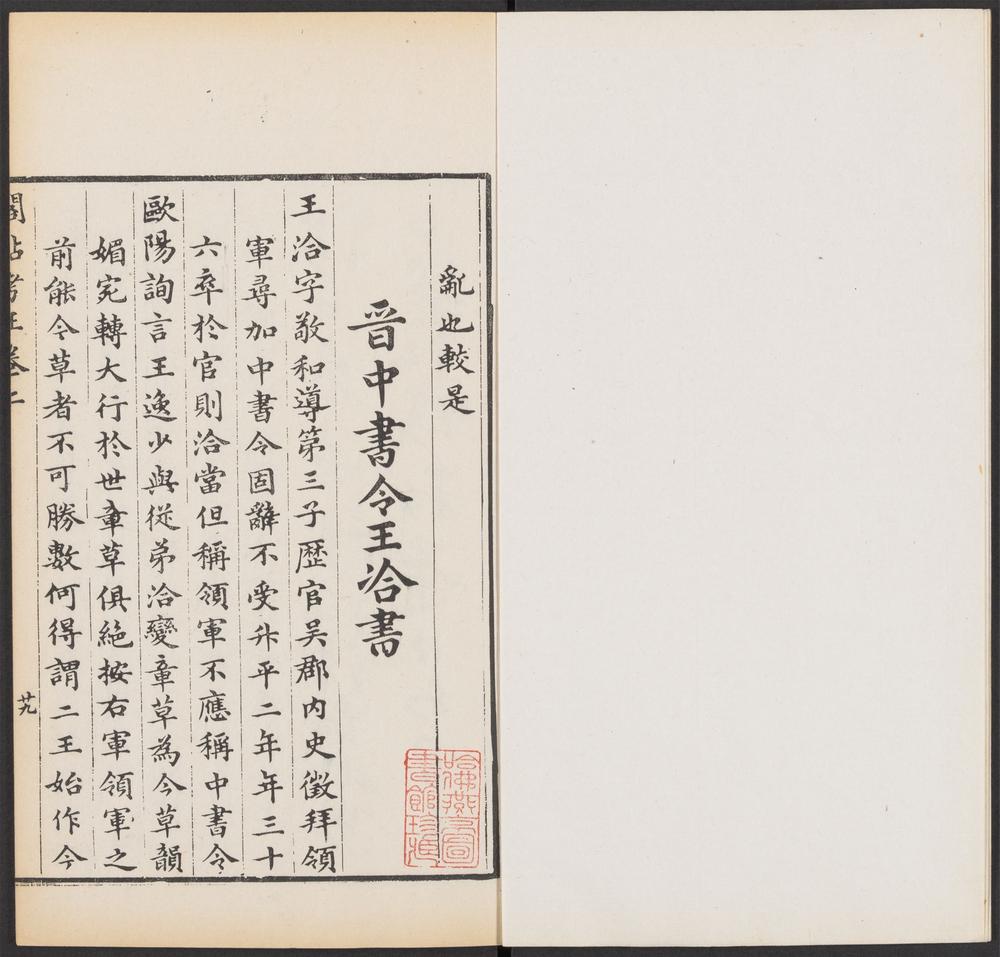 亂也較是
晋中書令王洽書
王洽字敬和導第三子歴官吴郡内史徵拜領
軍尋加中書令固辭不受升平二年年三十
六卒於官則洽當但稱領軍不應稱中書令
歐陽詢言王逸少與從弟洽變章草為今草韻
媚宛轉大行於世章草俱絶按右軍領軍之
前能今草者不可勝數何得謂二王始作今
閣帖考正卷二
廿九
哈佛燕京圖
書館珍藏